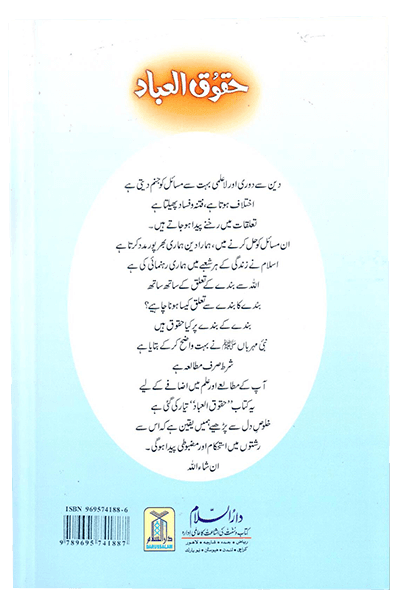 حقوق العباد
دین سے دوری اور لاعلمی بہت سے مسائل کو جنم دیتی ہے
اختلاف ہوتا ہے، فتنہ و فساد پھیلتا ہے
تعلقات میں رخنے پیدا ہو جاتے ہیں۔
ان مسائل کو حل کرنے میں، ہمارا دین ہماری بھرپور مدد کرتا ہے
اسلام نے زندگی کے ہر شعبے میں ہماری رہنمائی کی ہے
اللہ سے بندے کے تعلق کے ساتھ ساتھ
بندے کا بندے سے تعلق کیسا ہونا چاہیے؟
بندے کے بندے پر کیا حقوق ہیں
نبیٔ مہرباں ﷺ نے بہت واضح کر کے بتایا ہے
شرط صرف مطالعہ ہے
آپ کے مطالعے اور علم میں اضافے کے لیے
یہ کتاب "حقوق العباد" تیار کی گئی ہے
خلوصِ دل سے پڑھیے ہمیں یقین ہے کہ اس سے
رشتوں میں استحکام اور مضبوطی پیدا ہوگی۔
ان شاء اللہ
ISBN 969574188-6
9 789695 741887
DARUSSALAM
دارالسلام
کتاب و سنت کی اشاعت کا عالمی ادارہ
ریاض • جدہ • شارجہ • لاہور
کراچی • لندن • ہیوسٹن • نیویارک